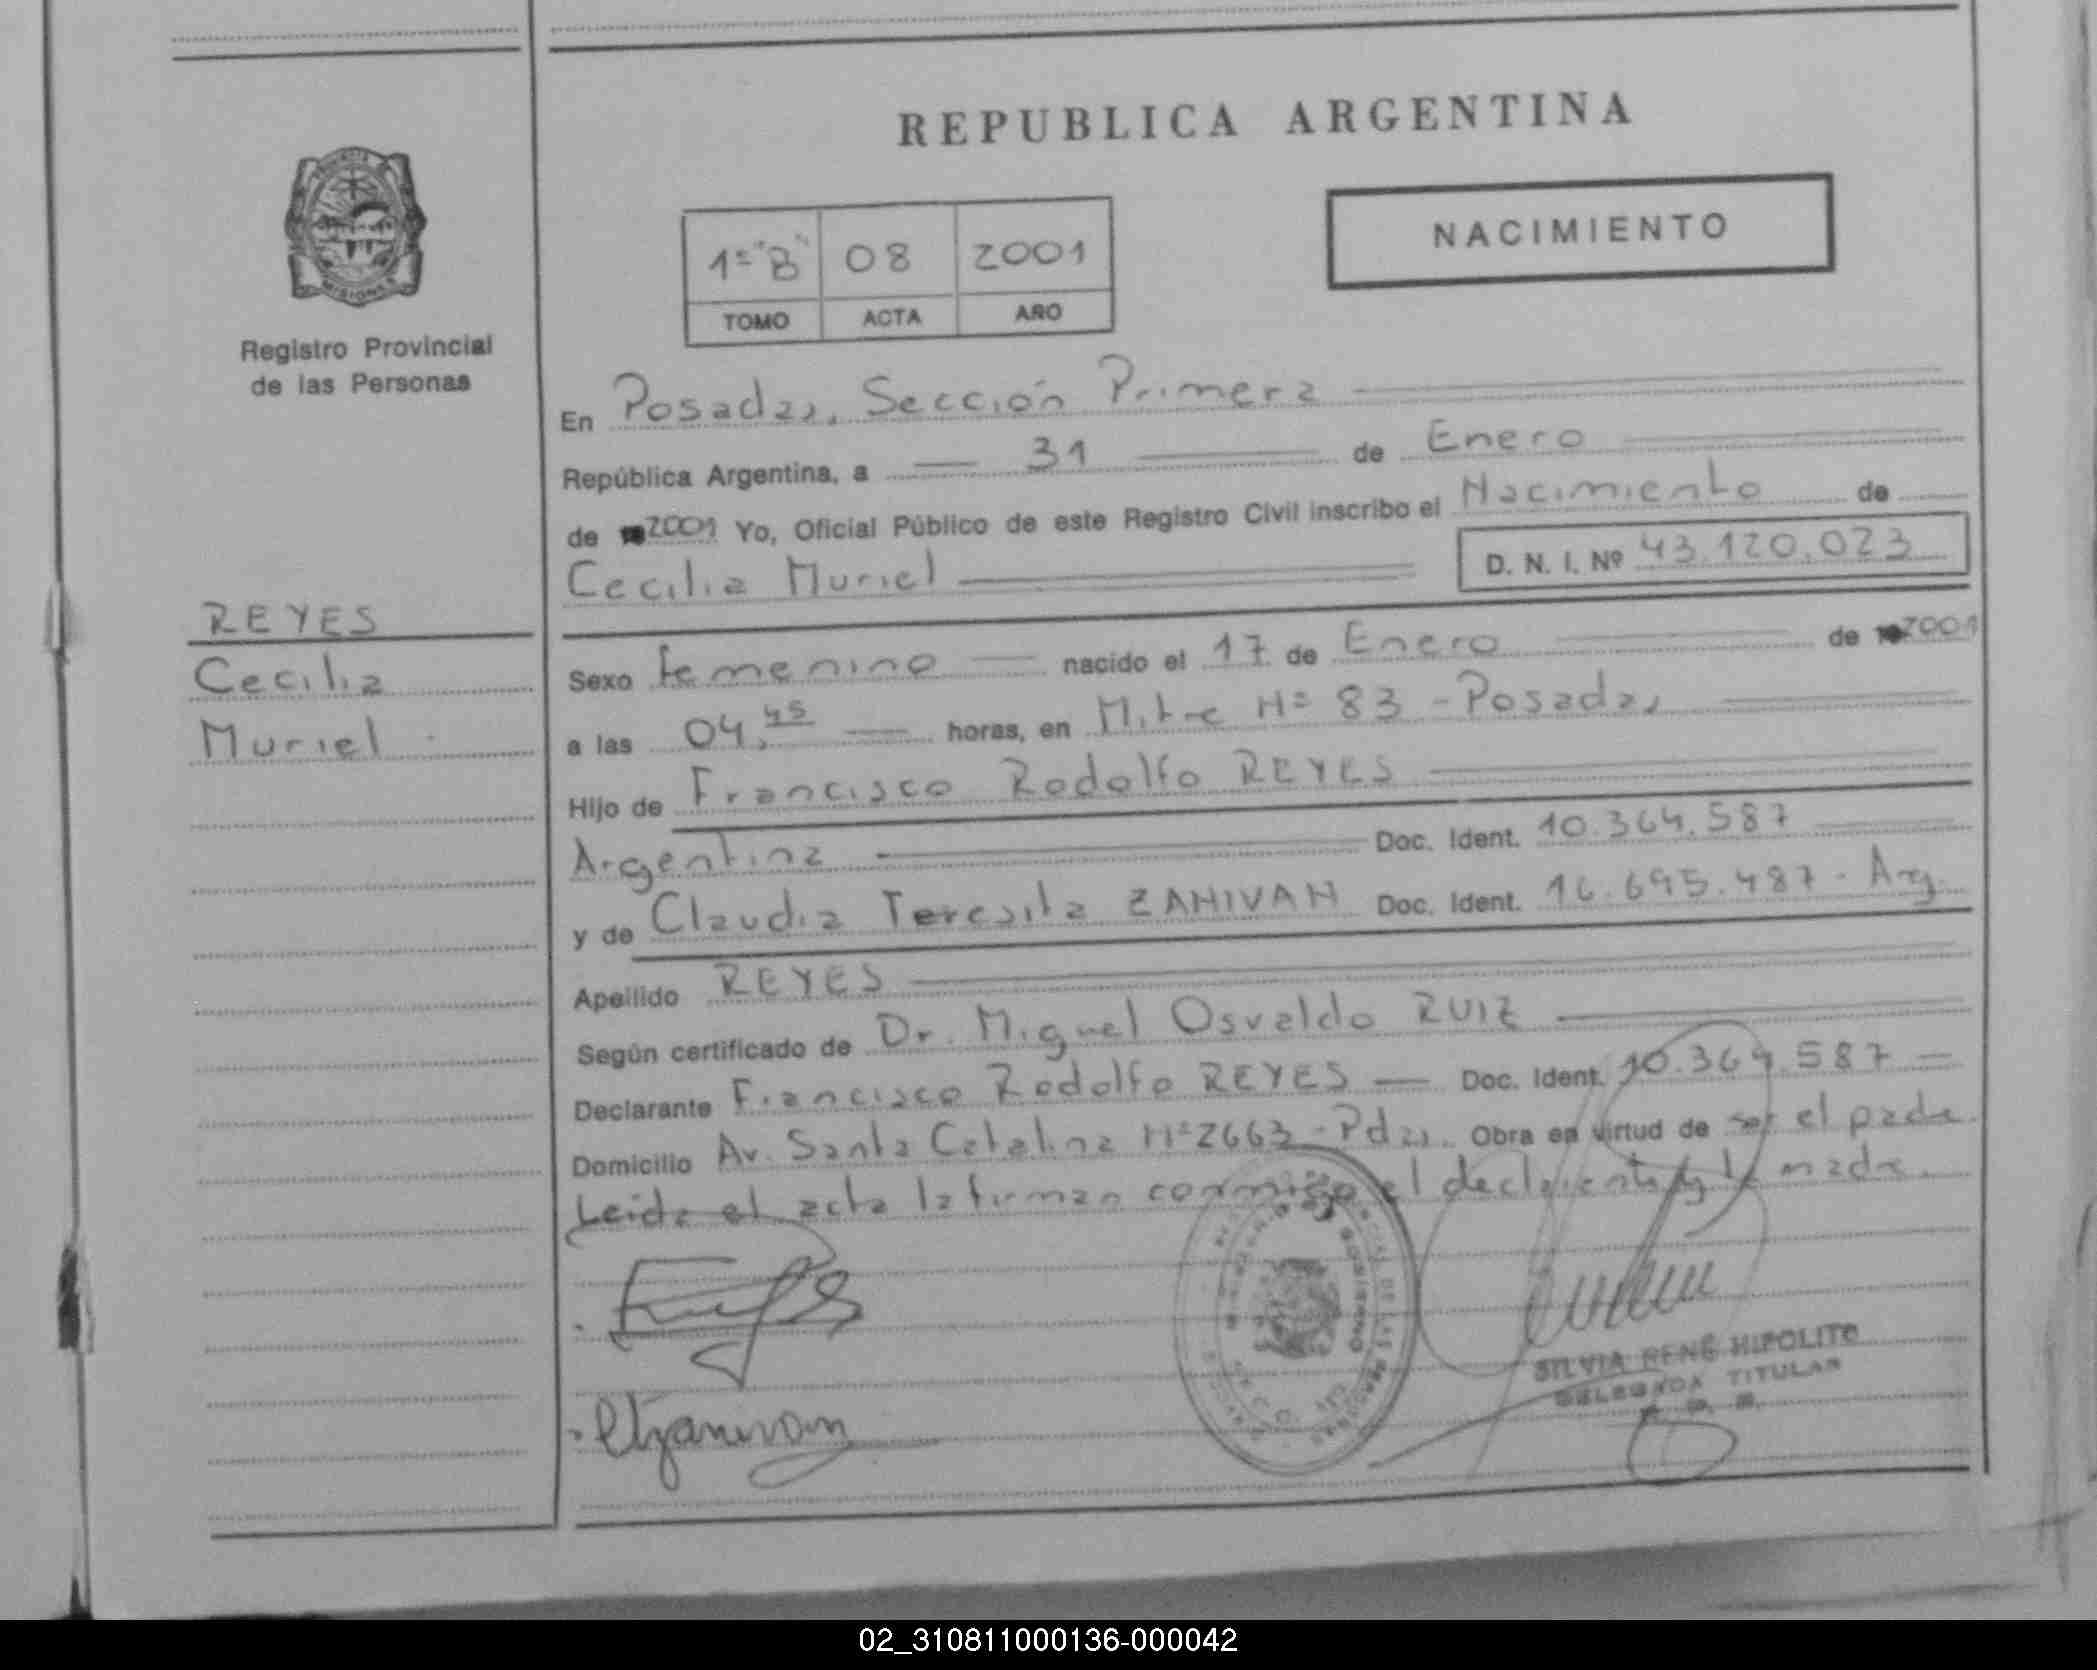 REPUBLICA ARGENTINA
NACIMIENTO
1º "B" 08 2001
TOMO ACTA AÑO
MISIONES
Registro Provincial
de las Personas
REYES
Cecilia
Muriel
En Posadas, Sección Primera
República Argentina, a 31 de Enero
de 2001 Yo, Oficial Público de este Registro Civil inscribo el Nacimiento de
Cecilia Muriel D. N. I. Nº 43.120.023
Sexo femenino nacido el 17 de Enero de 2001
a las 04,45 horas, en Mitre Nº 83 - Posadas
Hijo de Francisco Rodolfo REYES
Argentina Doc. Ident. 10.364.587
y de Claudia Teresita ZANIVAN Doc. Ident. 16.695.487 - Arg.
Apellido REYES
Según certificado de Dr. Miguel Osvaldo RUIZ
Declarante Francisco Rodolfo REYES Doc. Ident. 10.364.587
Domicilio Av. Santa Catalina Nº 2663 - Pdas. Obra en virtud de ser el padre.
Leida el acta la firman conmigo el declarante y la madre.
SILVIA RENÉ HIPOLITO
DELEGADA TITULAR
02_310811000136-000042